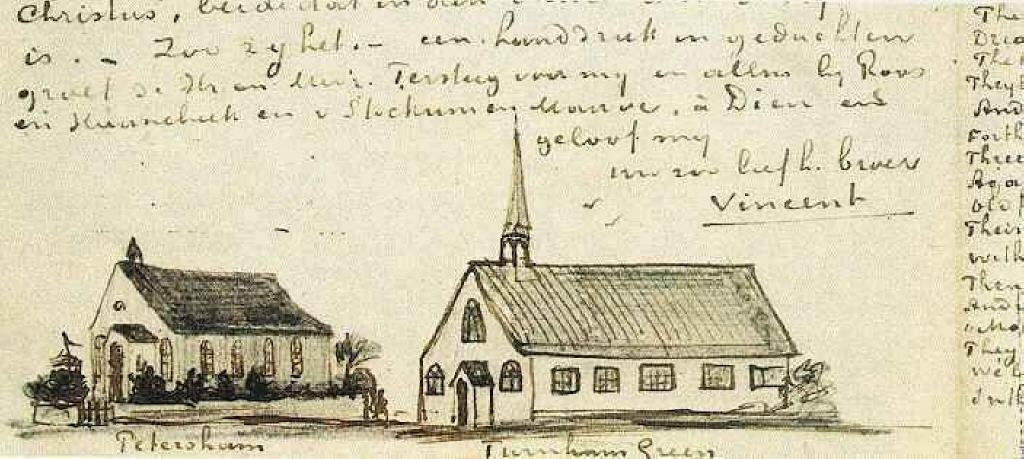 Christus,
is. - Zoo zy het. - een handdruk in gedachten
groet de Hr. en Mevr. Tersteeg voor my en allen by Roos
en Haanebeek en v Stockum en Mauve, à Dieu en
geloof my
uw zoo liefh. broer
Vincent
Petersham
Turnham Green
The
They
And
Forth
Three
Again
Old
Their
with
Then
And
They